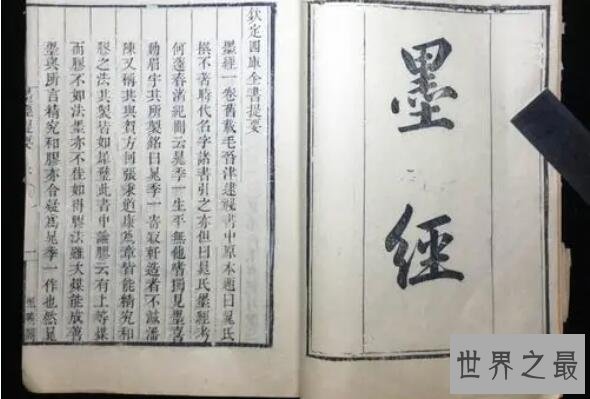 墨經
欽定四庫全書提要
墨經一卷舊載毛晉津逮祕書中原本題曰晁氏
撰不著時代名字諸書引之亦但曰晁氏墨經考
何薳春渚紀聞云晁季一生平無他嗜獨見墨喜
動眉宇其所製銘曰晁季一寄寂軒造者不減潘
陳又稱其與賀方回張秉道康為章皆能精究和
膠之法其製皆如犀璧此書中論膠云有上等煤
而膠不如法墨亦不佳如得膠法雖次煤能成善
墨與所言精究和膠亦合疑為晁季一作也然晁
墨經提要
一
世界之最